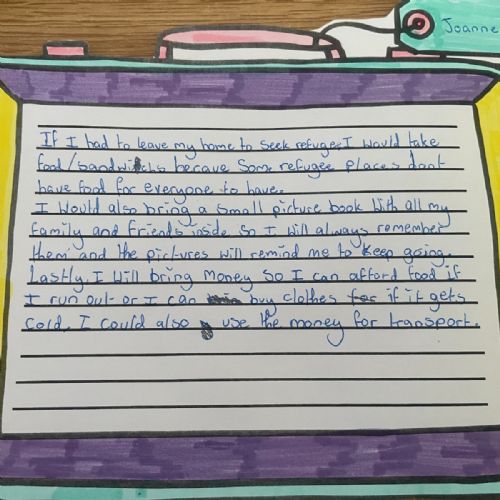 Joanne
If I had to leave my home to seek refugee, I would take
food/sandwichs becaue some refugee places dont
have food for everyone to have.
I would also bring a small picture book with all my
family and friends inside so I will always remember
them and the pictures will remind me to keep going.
Lastly, I will bring money so I can afford food if
I run out or I can buy clothes for if it gets
cold. I could also use the money for transport.